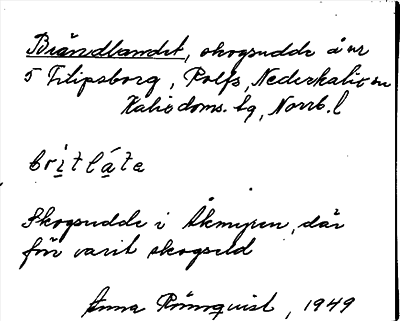 Brändlandet, skogsudde å nr
5 Filipsborg, Rolfs, Nederkalix sn
Kalix doms. lg, Norrb. l
Skogsudde i Åkmyren, där
förr varit skogseld
Anna Rönnqvist, 1949